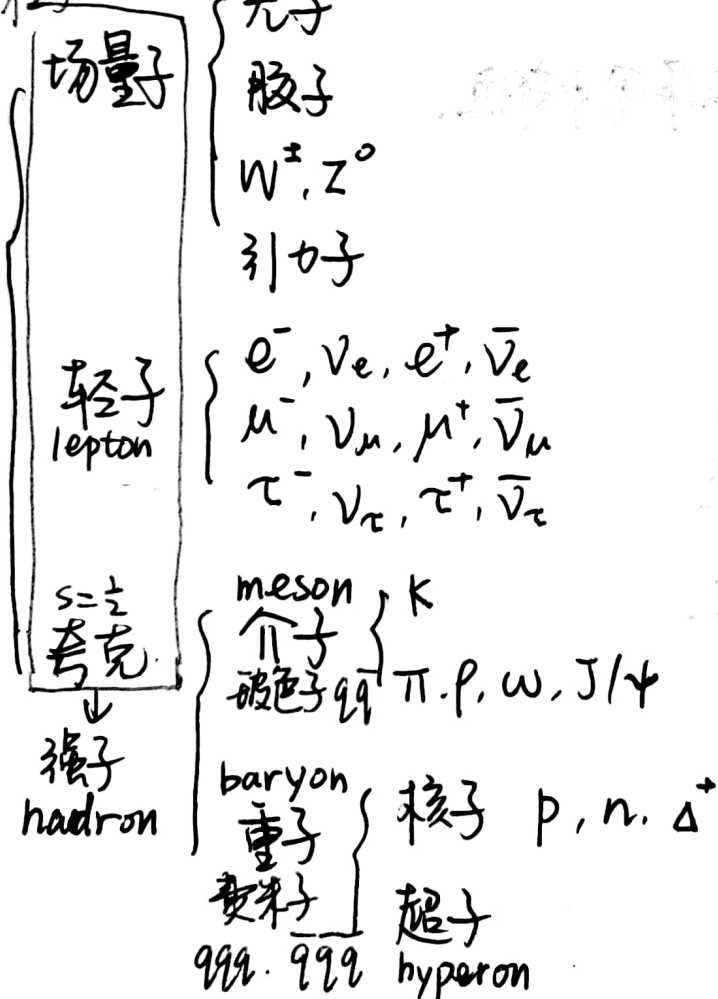 光子
场量子
胶子
W±, Z⁰
引力子
轻子
lepton
e⁻, νₑ, e⁺, ν̄ₑ
μ⁻, ν_μ, μ⁺, ν̄_μ
τ⁻, ν_τ, τ⁺, ν̄_τ
s=½
夸克
强子
hadron
meson
介子
玻色子 qq̄
K
π, ρ, ω, J/ψ
baryon
重子
费米子
qqq. q̄q̄q̄
核子 p, n, Δ⁺
超子
hyperon